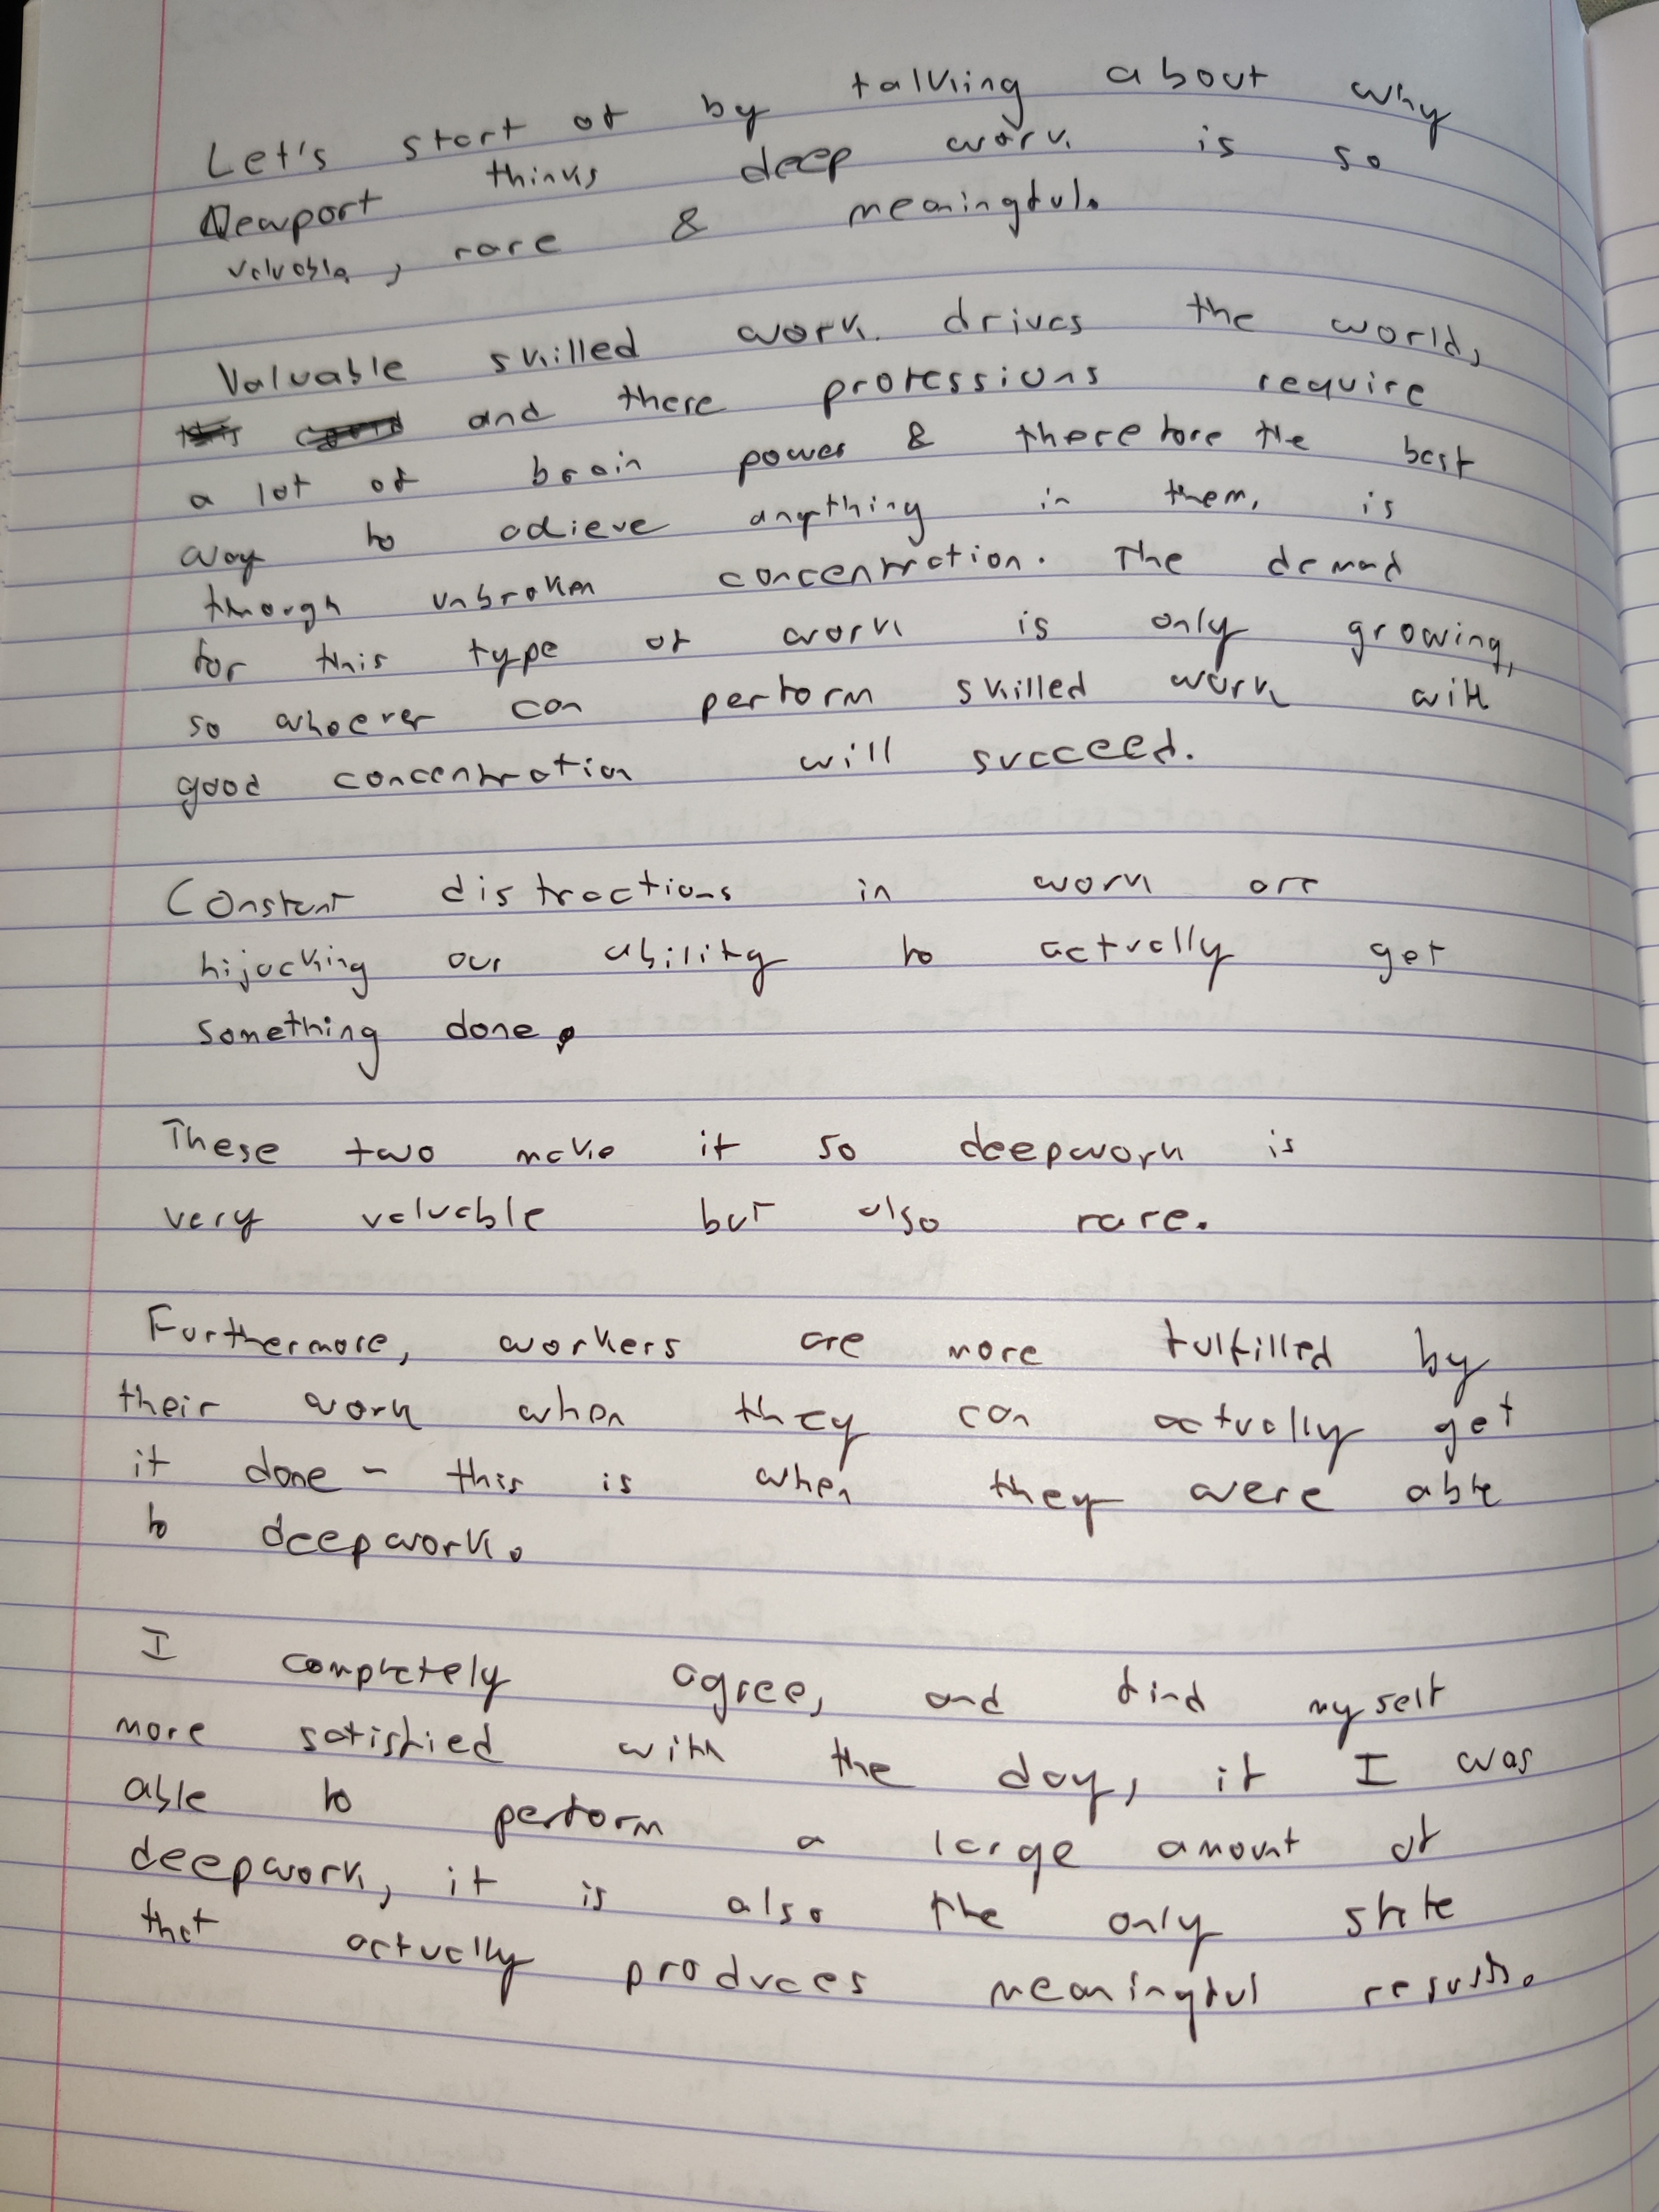 Let's start of by talking about why
Newport thinks deep work is so
valuable, rare & meaningful.
Valuable skilled work drives the world,
and there professions require
a lot of brain power & therefore the best
way to achieve anything in them, is
through unbroken concentration. The demand
for this type of work is only growing,
so whoever can perform skilled work with
good concentration will succeed.
Constant distractions in work are
hijacking our ability to actually get
something done.
These two make it so deepwork is
very valuable but also rare.
Furthermore, workers are more fulfilled by
their work when they can actually get
it done - this is when they were able
to deepwork.
I completely agree, and find myself
more satisfied with the day, if I was
able to perform a large amount of
deepwork, it is also the only state
that actually produces meaningful results.